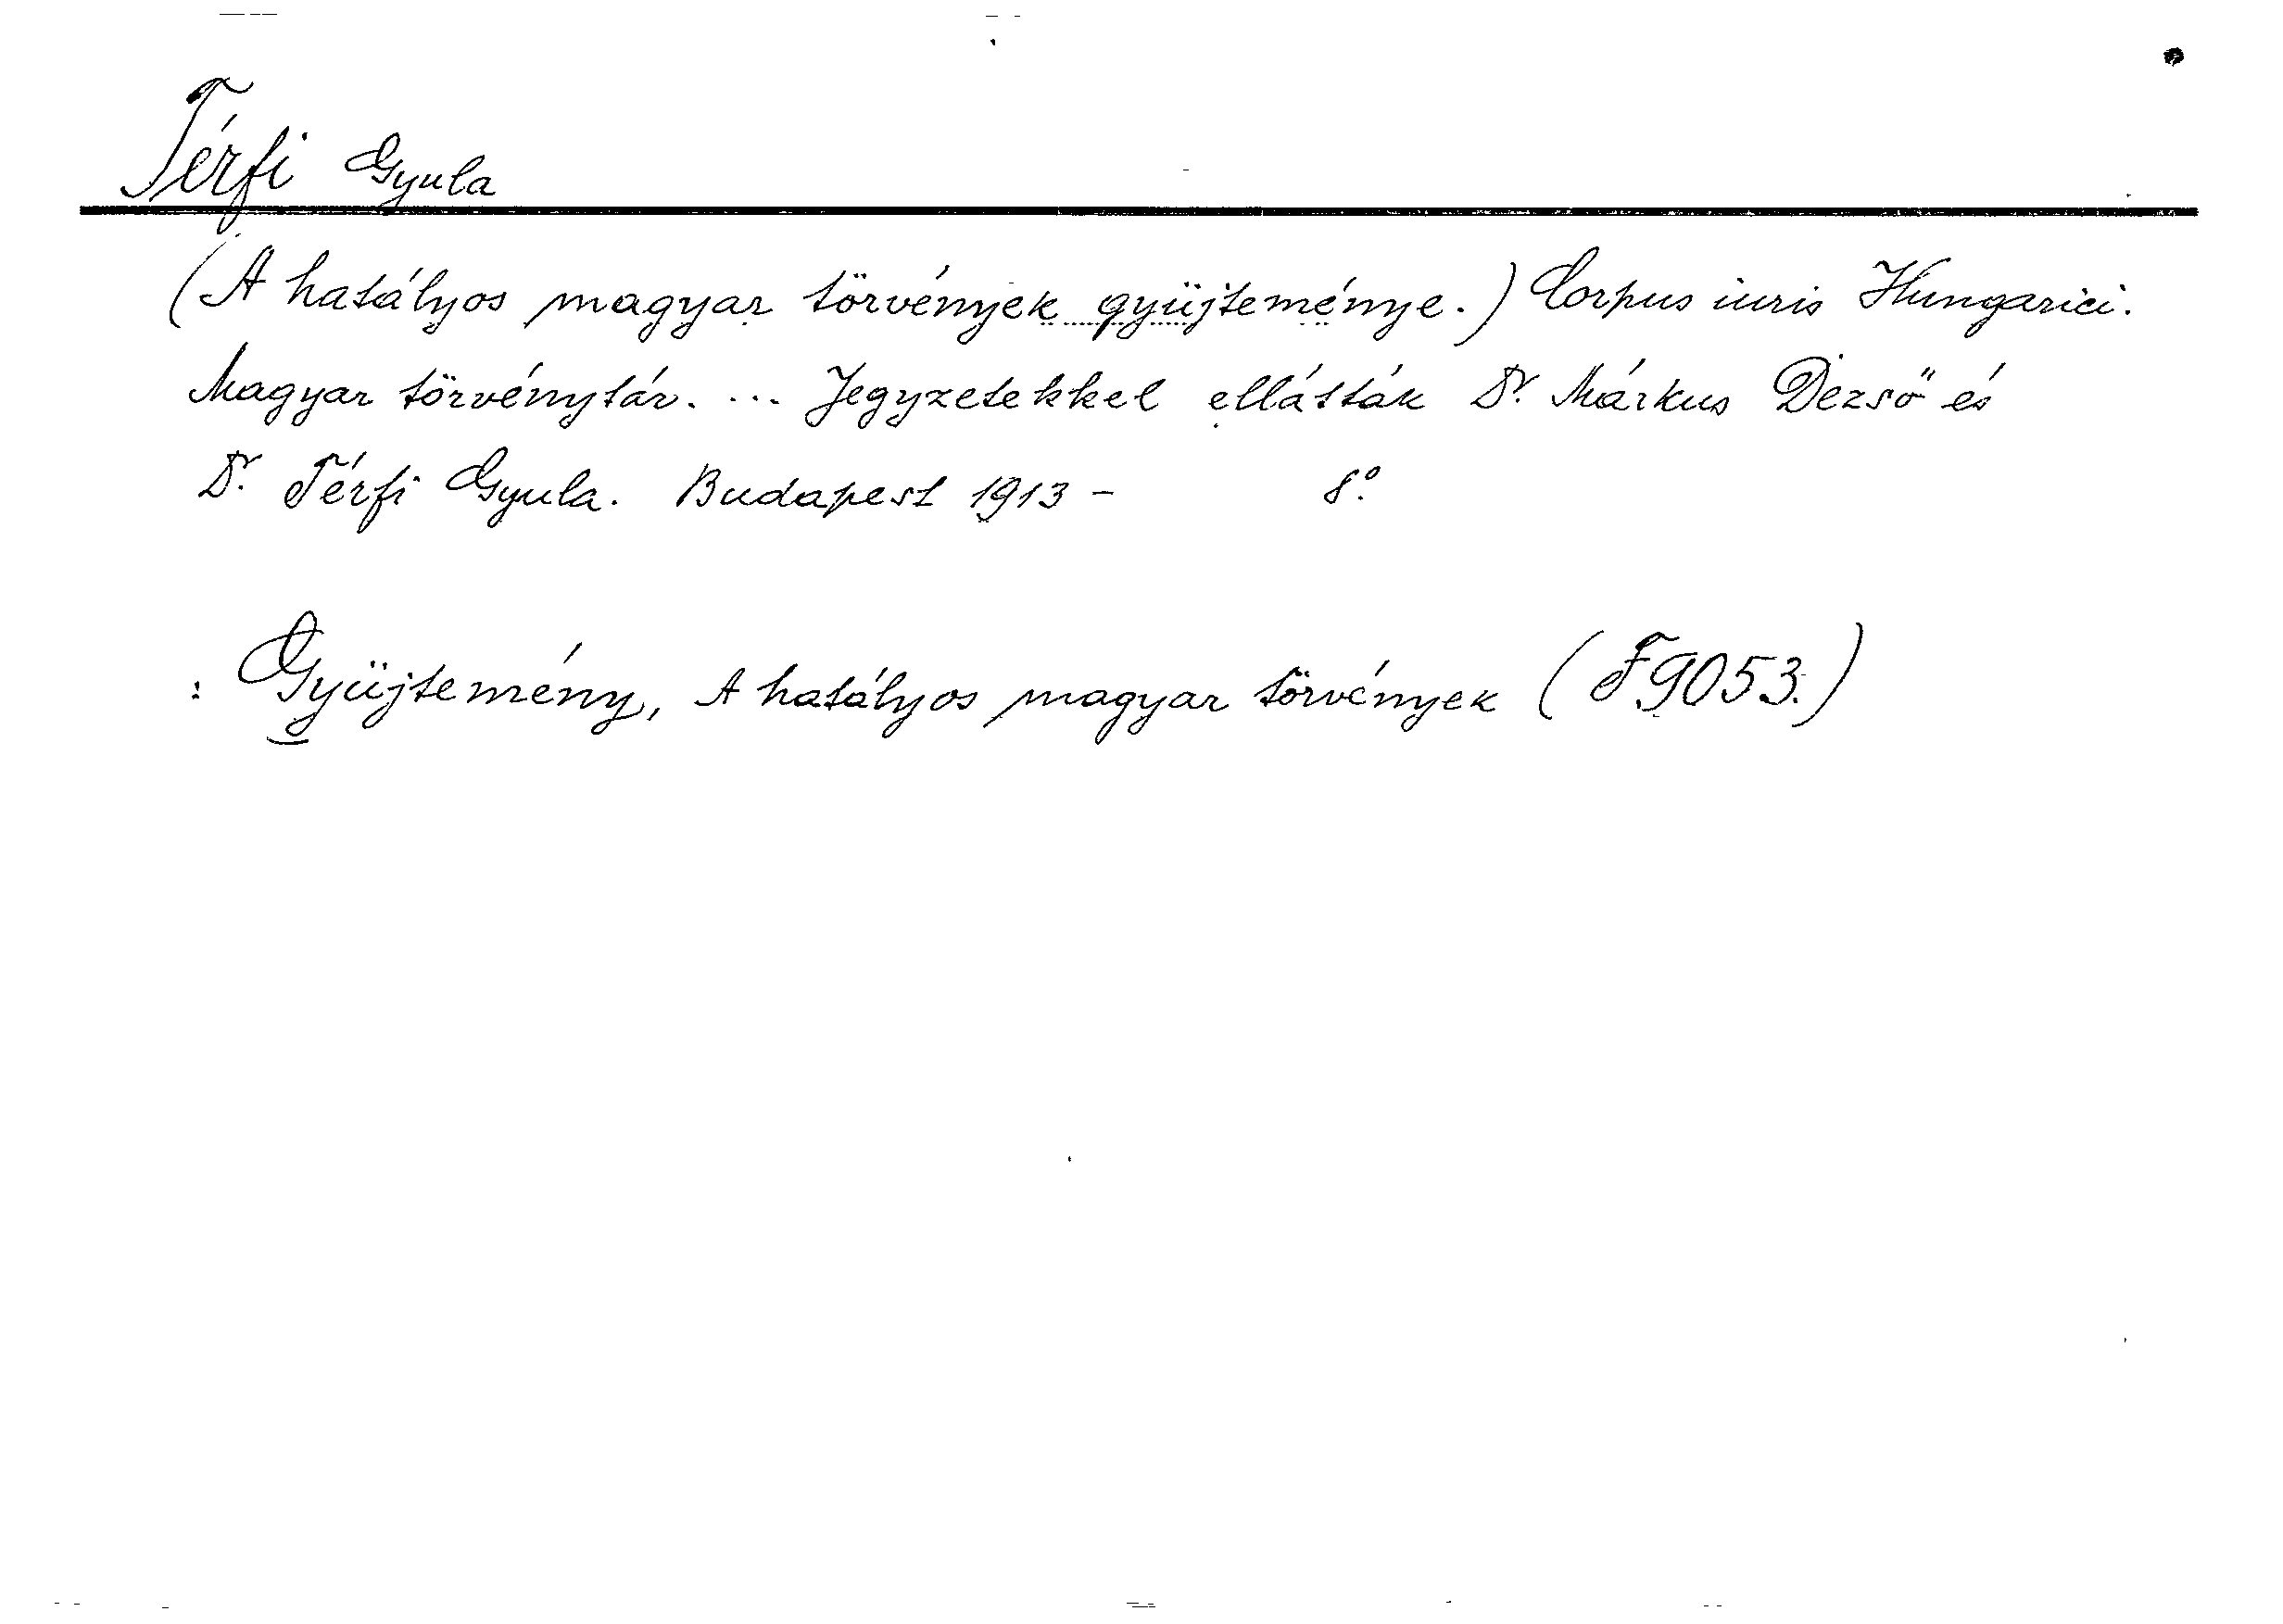 Térfi Gyula
(A hatályos magyar törvények gyüjteménye.) Corpus iuris Hungarici.
Magyar törvénytár. ... Jegyzetekkel ellátták Dr. Márkus Dezső és
Dr. Térfi Gyula. Budapest 1913 - 8°.
: Gyüjtemény, A hatályos magyar törvények (F9053.)